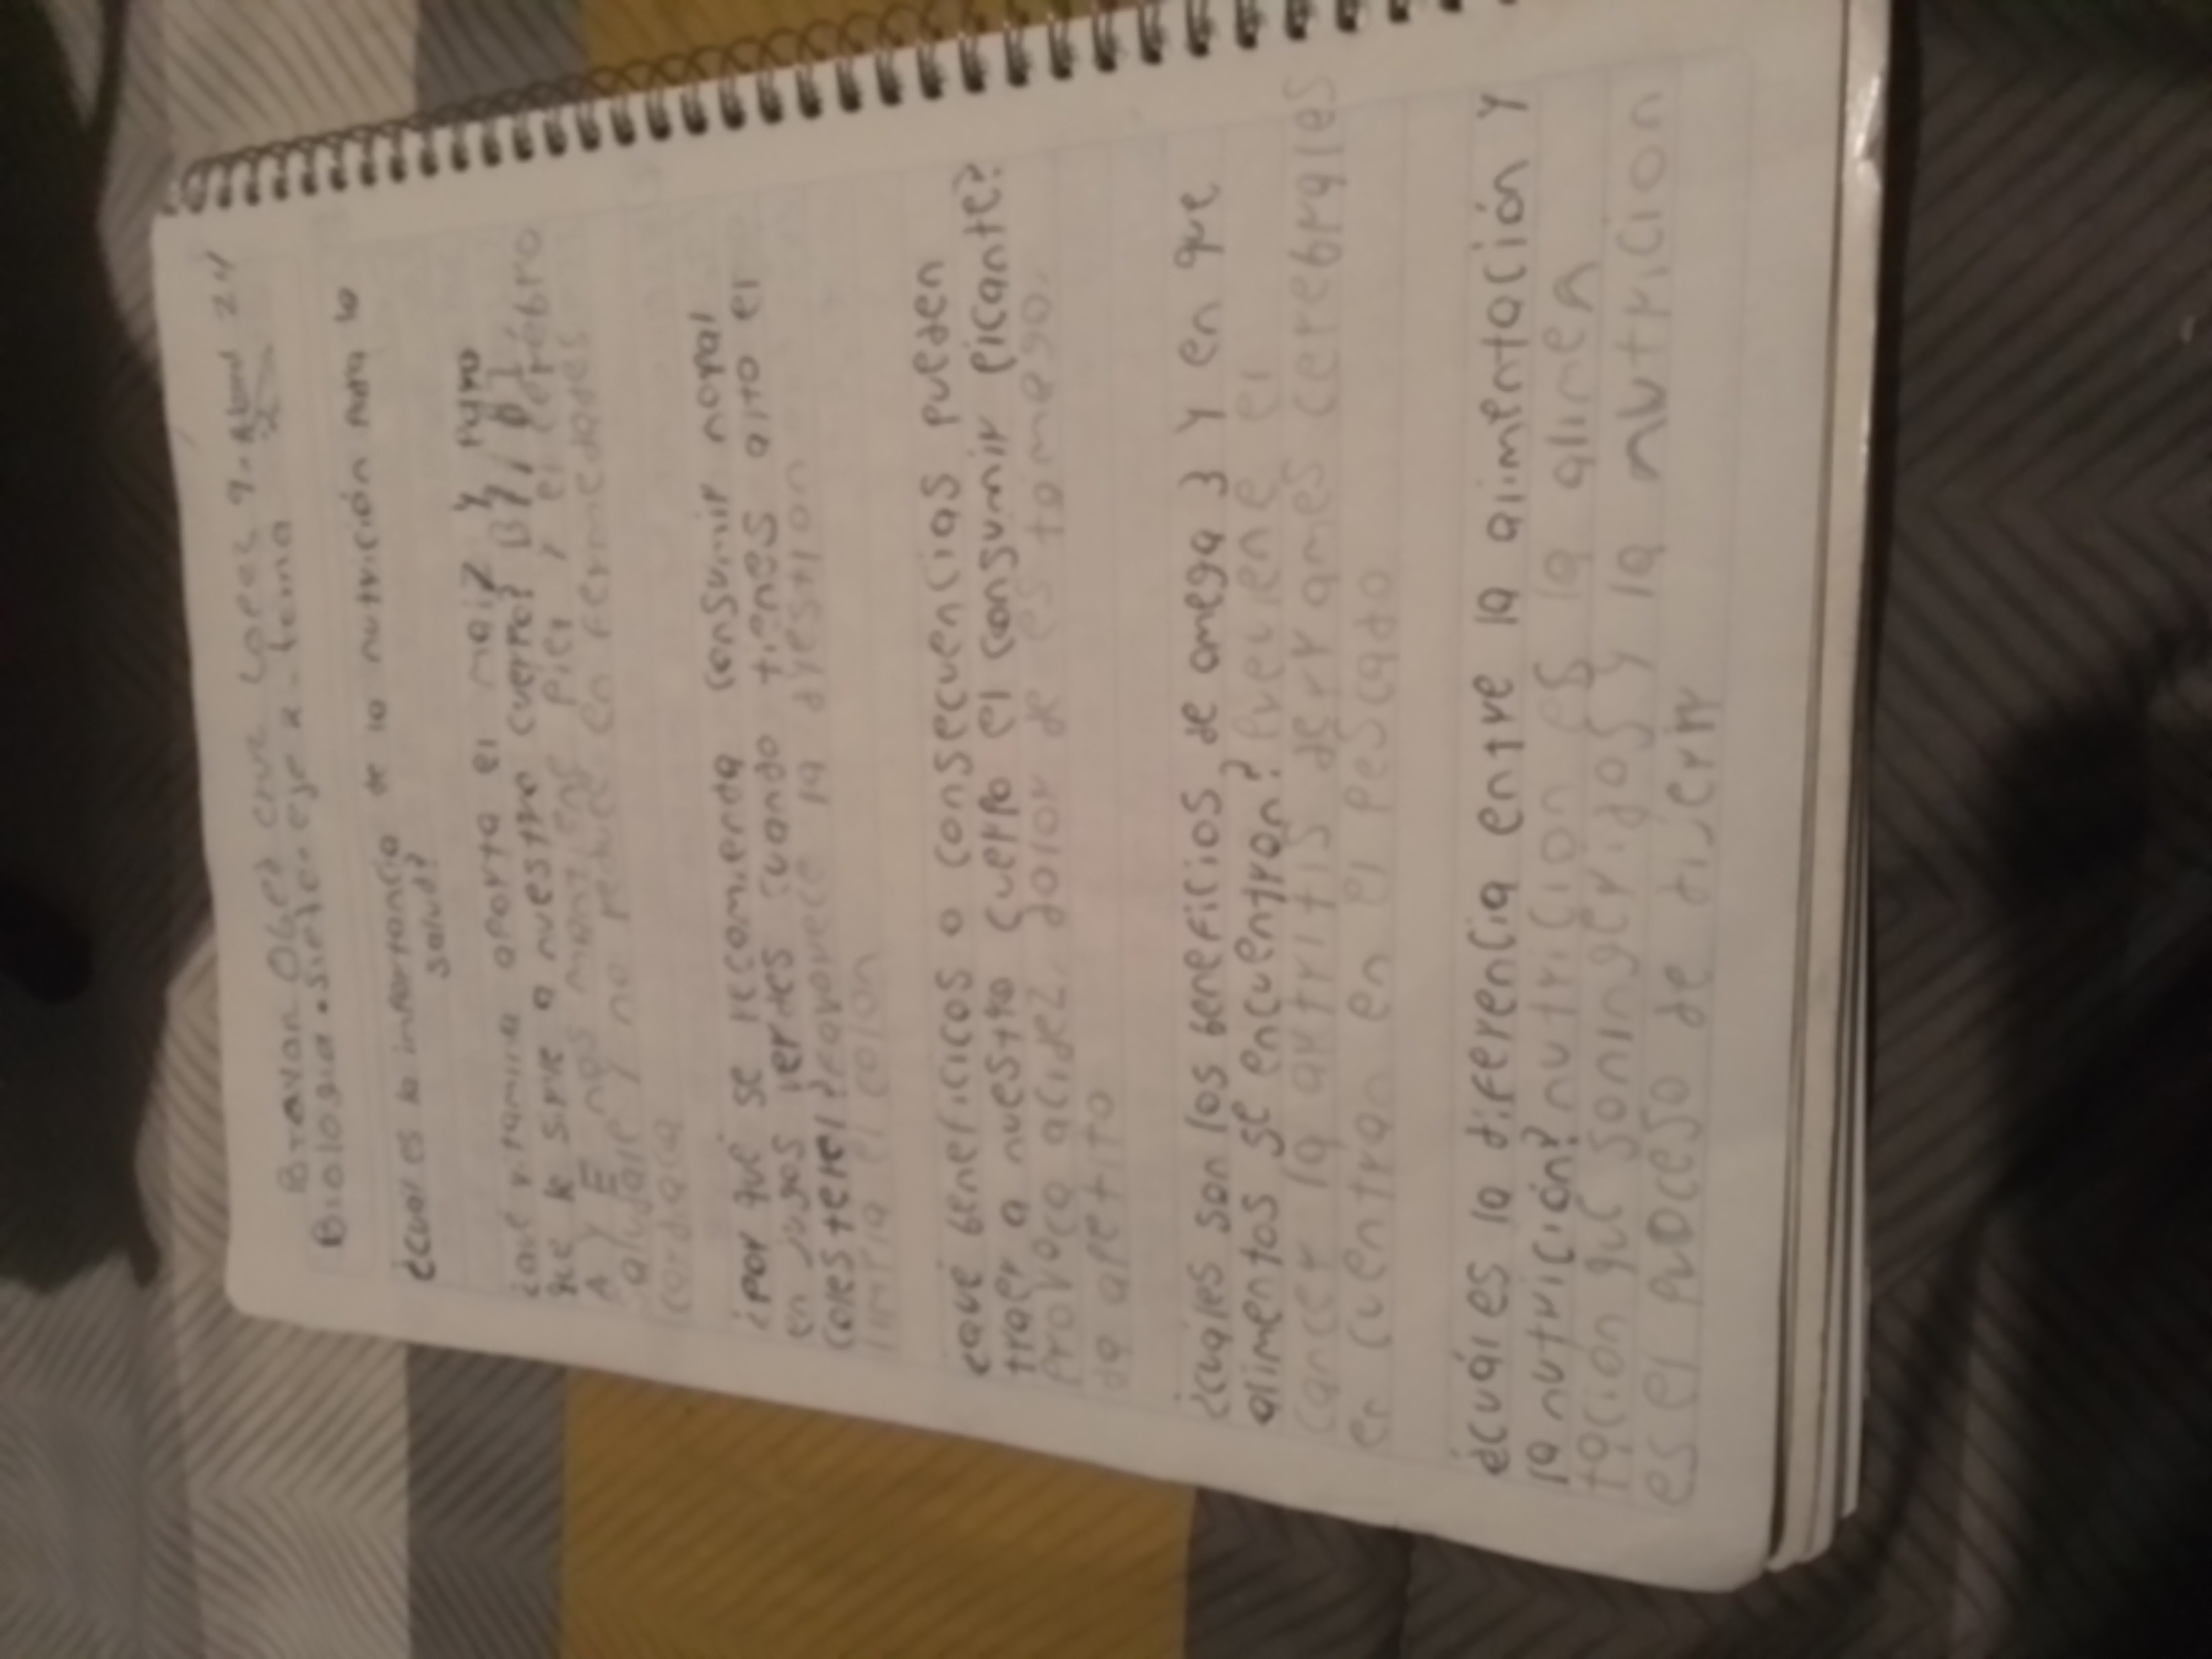 Brayan Obed cruz Lopez 9-Abril 24
Biologia
¿cual es la importancia de la nutrición para la
salud?
¿qué vitamina aporta el maiz y para
que le sirve a nuestro cuerpo? B1, B1
A y E nos mantiene piel y el cerebro
y no reduce en fermedades
cardiaca
¿por qué se recomienda consumir nopal
en jugos verdes cuando tienes alto el
colesterel? favorece la
limpia el colon
¿qué beneficicos o consecuencias pueden
traer a nuestro cuerpo el consumir picante?
Provoca acidez, dolor de estomego,
da apetito
¿cuáles son los beneficios de omega 3 y en que
alimentos se encuentran? previene el
cancer la artritis derrames cerebrales
en cuentran en el pescado
¿cuál es la diferencia entre la alimentación y
la nutrición? nutricion es la alimen
tacion que son ingeridos y la nutricion
es el proceso de